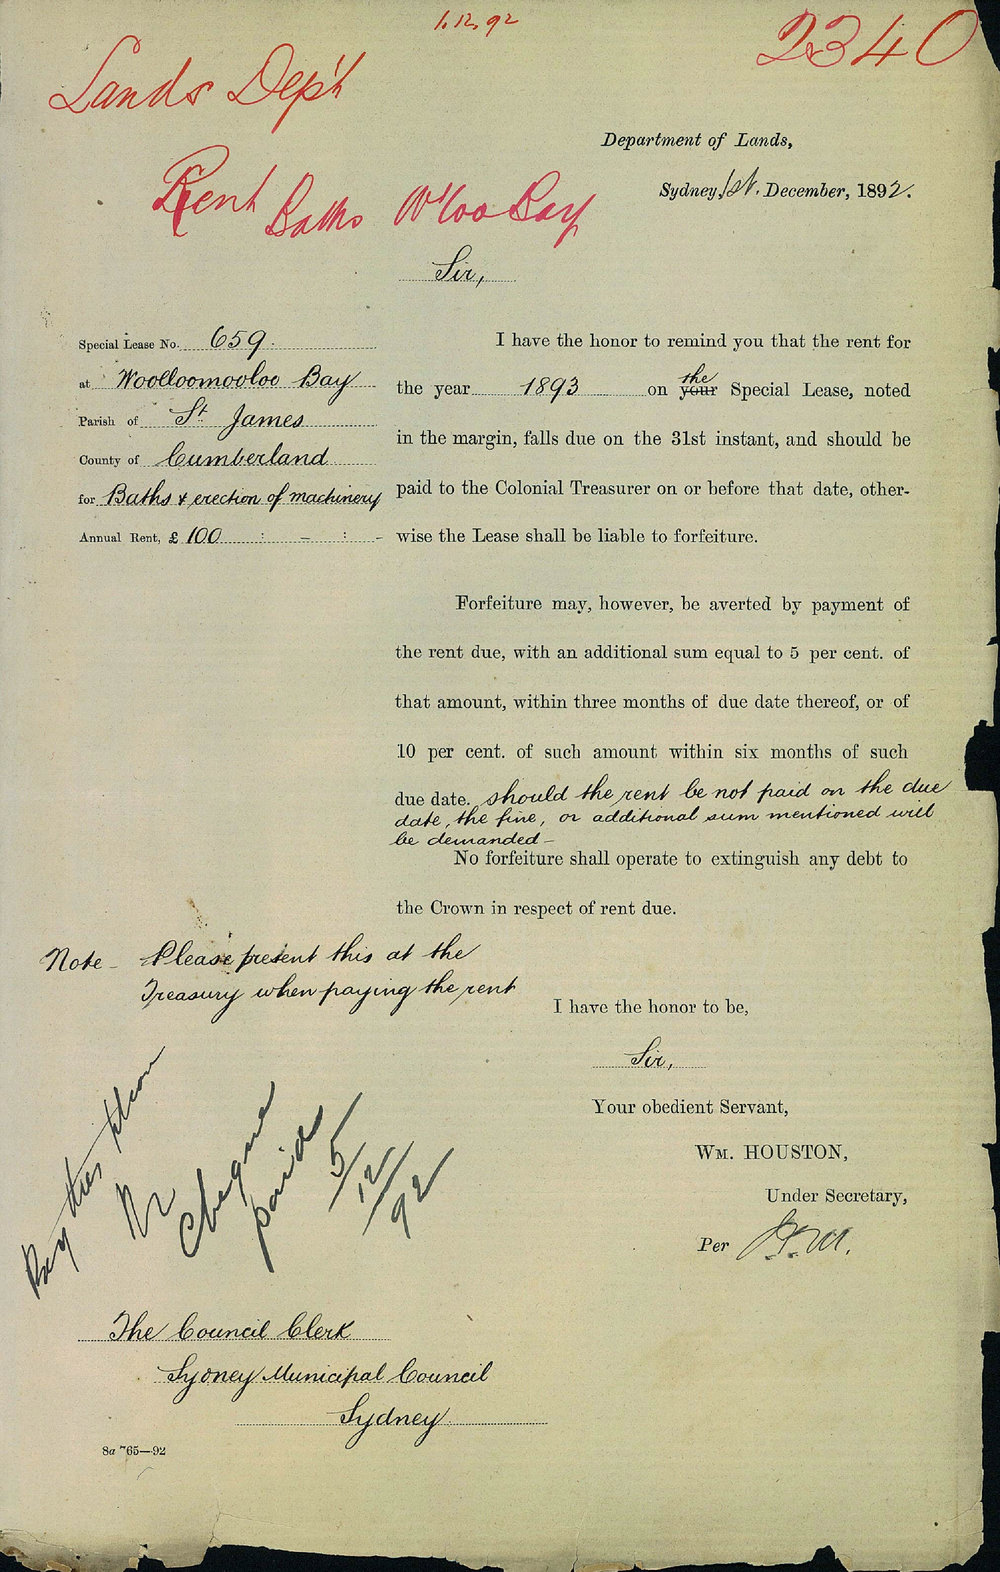 1.12.92
2340
Lands Dep't
Department of Lands,
Sydney, 1st. December, 1892.
Rent Baths W'loo Bay
Sir,
Special Lease No. 659.
at Woolloomooloo Bay
Parish of St. James
County of Cumberland
for Baths & erection of machinery
Annual Rent, £ 100 : – : -
I have the honor to remind you that the rent for
the year 1893 on your the Special Lease, noted
in the margin, falls due on the 31st instant, and should be
paid to the Colonial Treasurer on or before that date, other-
wise the Lease shall be liable to forfeiture.
Forfeiture may, however, be averted by payment of
the rent due, with an additional sum equal to 5 per cent. of
that amount, within three months of due date thereof, or of
10 per cent. of such amount within six months of such
due date. should the rent be not paid on the due
date, the fine, or additional sum mentioned will
be demanded –
No forfeiture shall operate to extinguish any debt to
the Crown in respect of rent due.
Note – Please present this at the
Treasury when paying the rent
I have the honor to be,
Sir,
Your obedient Servant,
Wm. HOUSTON,
Under Secretary,
Per
Pay this
Cheque
paid
5/12/92
The Council Clerk
Sydney Municipal Council
Sydney
8a 765—92